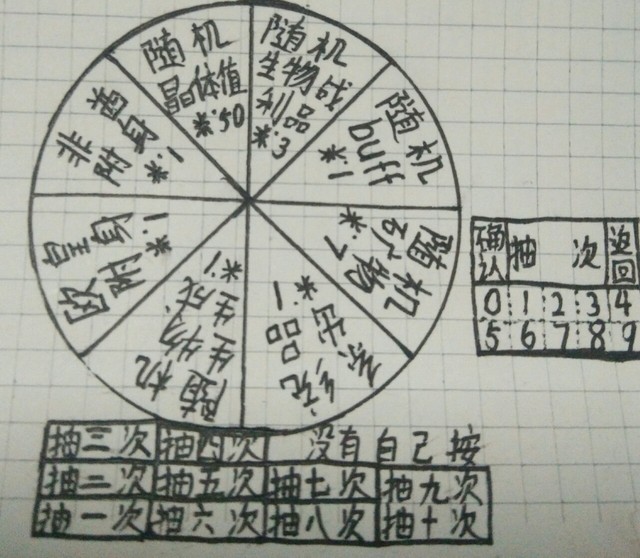 随机
晶体值
*:50
随机
生物战
利品
*:3
随机
buff
*:1
随机
矿物
*:7
系统
出品
*一
随机
生物
生成
*:1
欧皇
附身
*:1
非酋
附身
*:1
确认 抽 次 返回
0 1 2 3 4
5 6 7 8 9
抽三次 抽四次 没有自己按
抽二次 抽五次 抽七次 抽九次
抽一次 抽六次 抽八次 抽十次